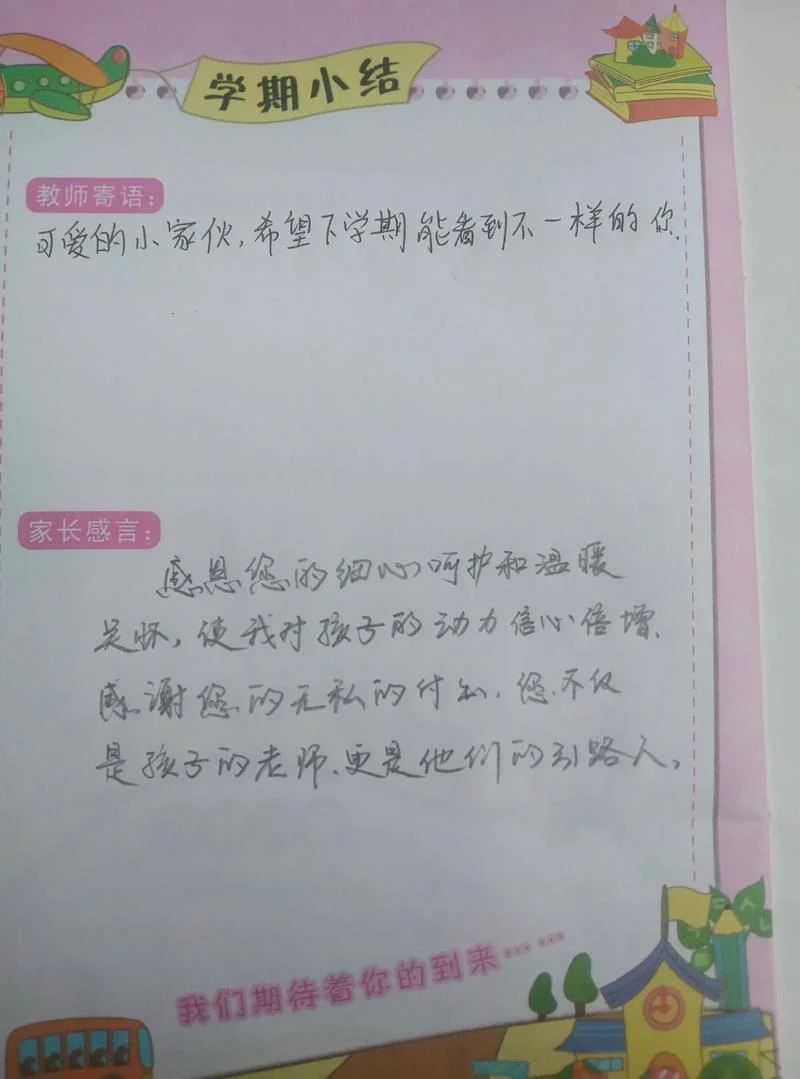 学期小结
教师寄语：
可爱的小家伙,希望下学期能看到不一样的你.
家长感言：
感恩您的细心呵护和温暖
关怀,使我对孩子的动力信心倍增.
感谢您的无私的付出.您.不仅
是孩子的老师.更是他们的引路人。
我们期待着你的到来……